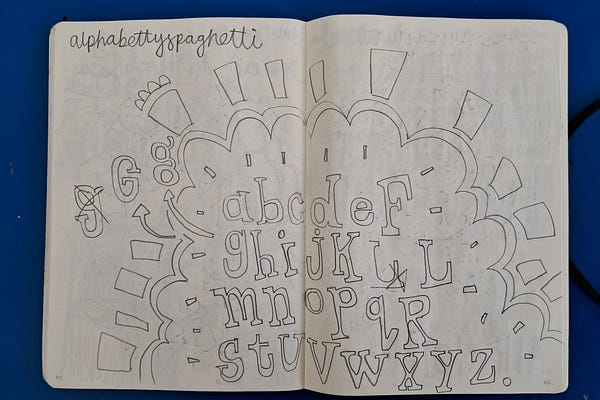 alphabettyspaghetti
g G g
abcdeF
ghijKL
mnopqR
stuvwxyz.